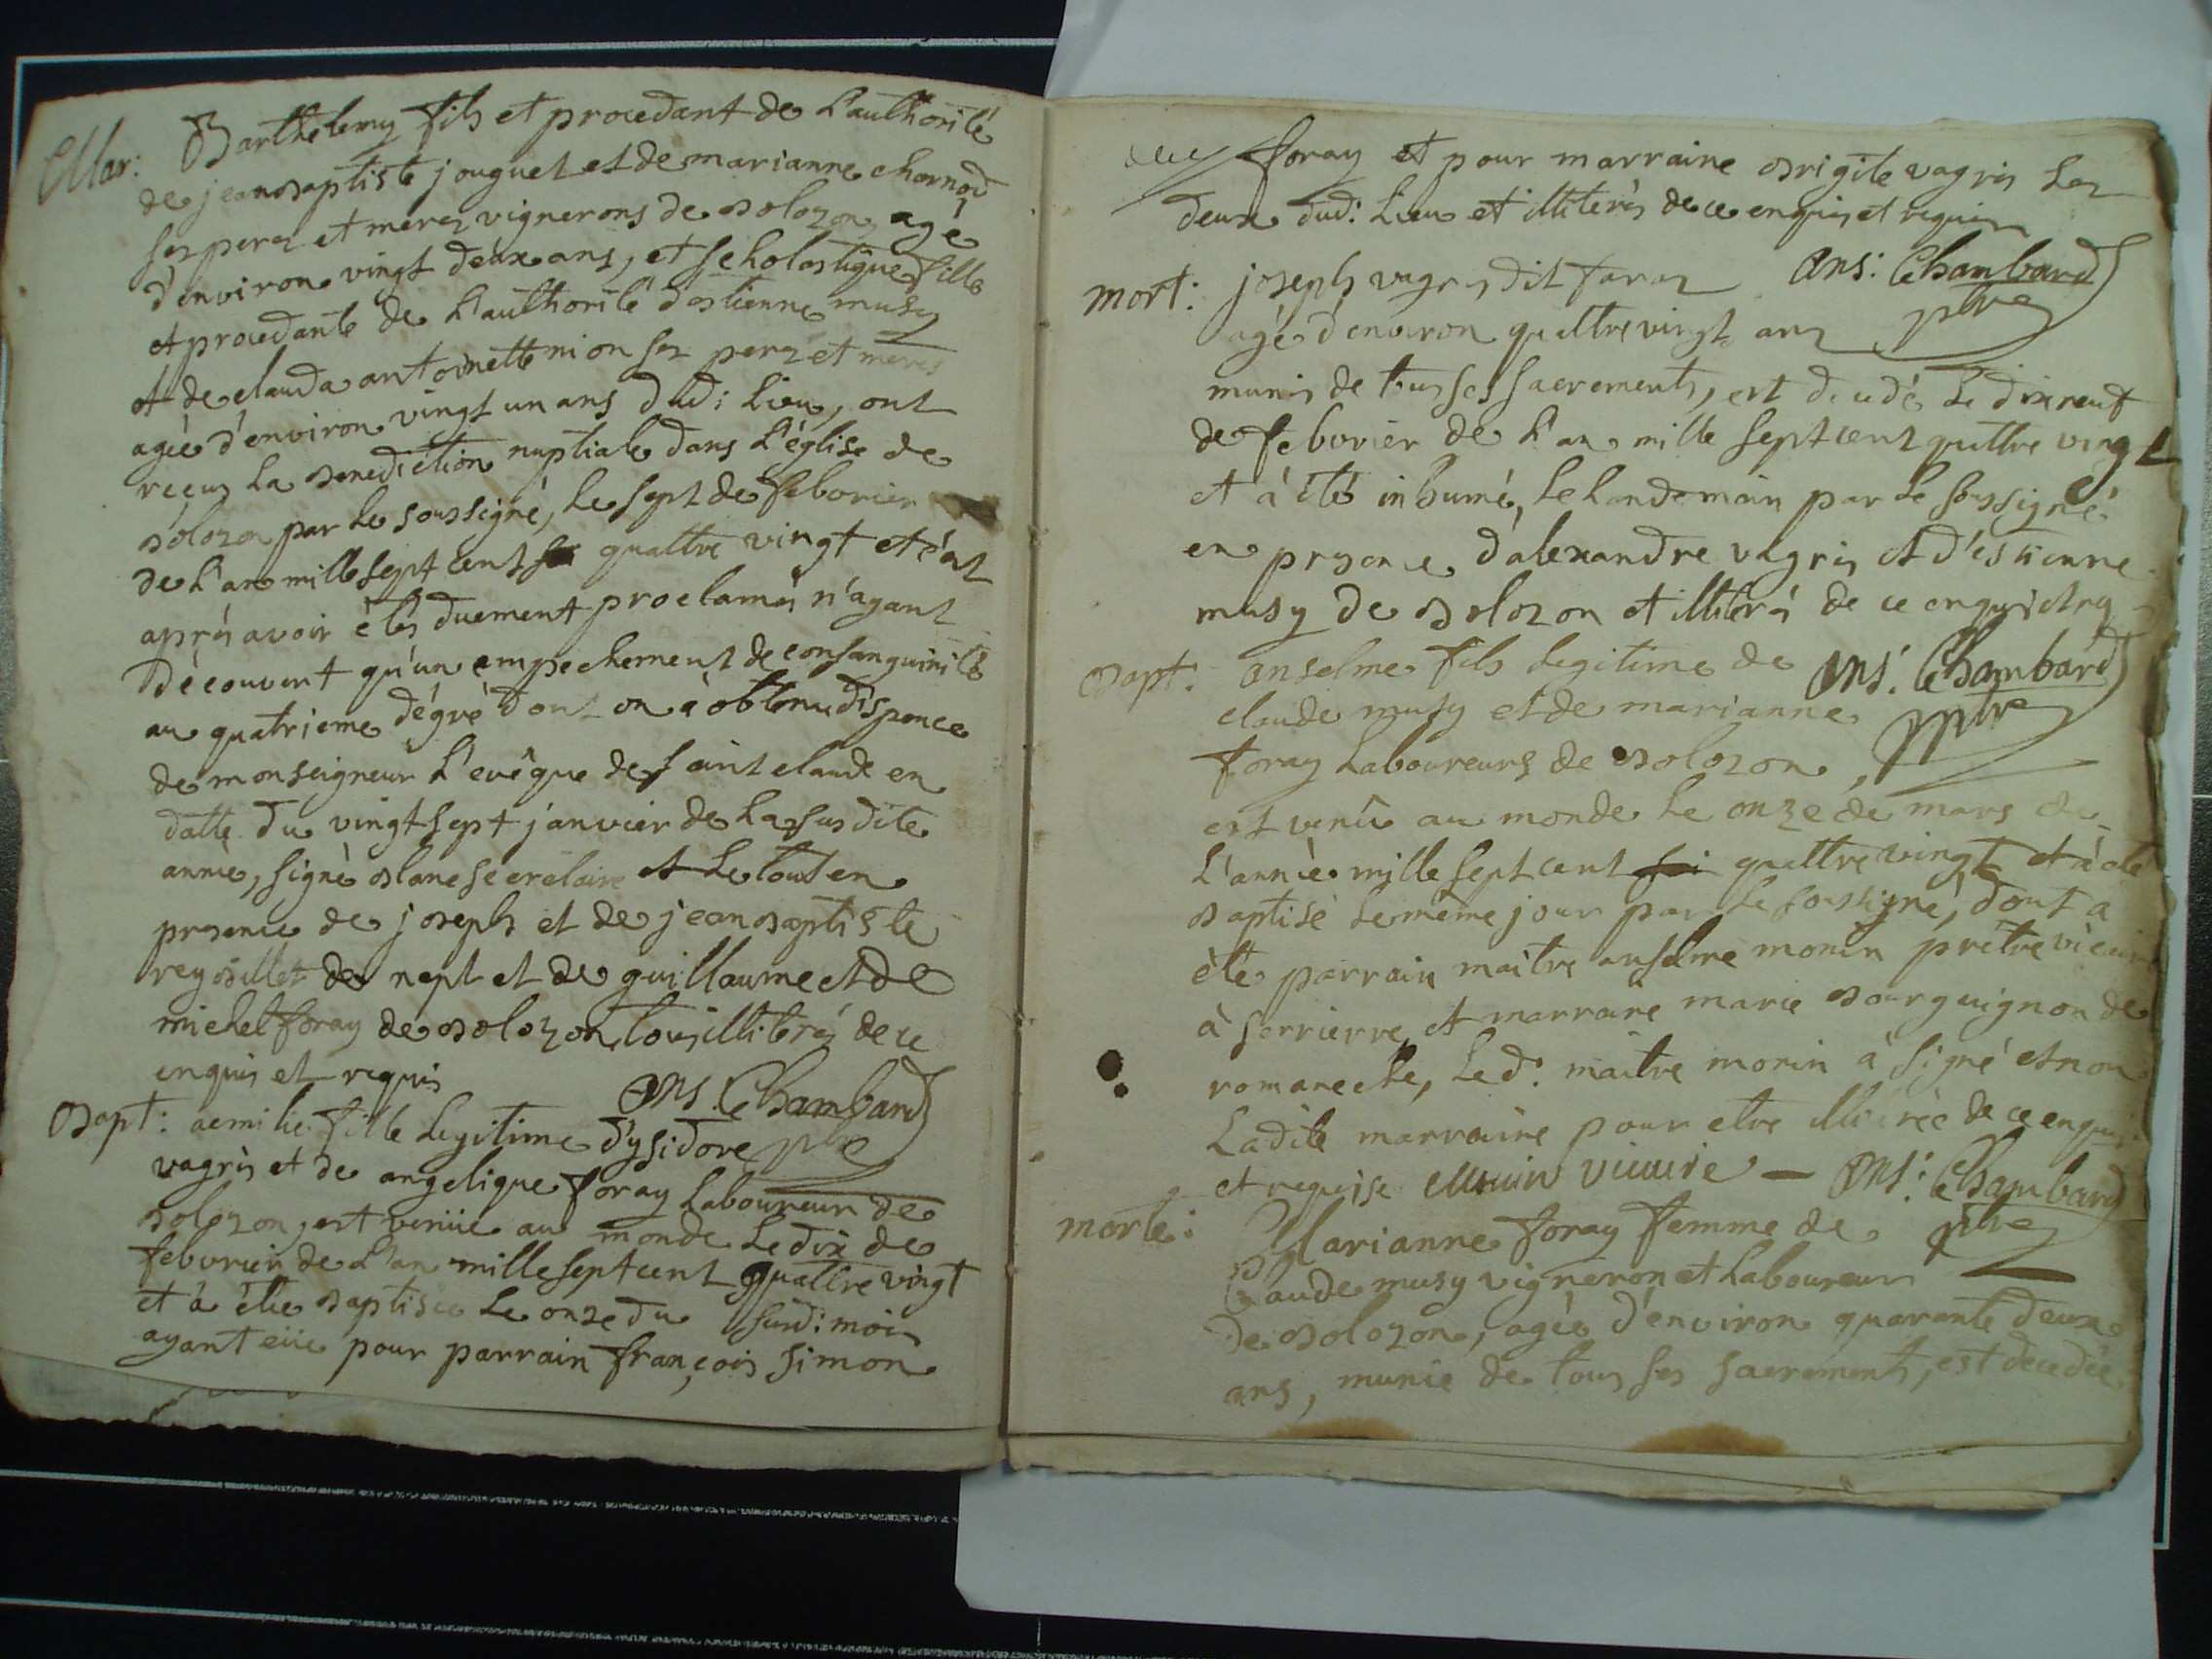 Mar: Barthelemy fils et procedant de l'authorité
de jean baptiste jouguet et de marianne chornod
ses peres et meres vignerons de bolozon, agé
d'environ vingt deux ans, et scholastique fille
et procedante de l'authorité d'estienne musy
et de clauda antoinette nion ses peres et meres
agée d'environ vingt un ans dud: lieu, ont
reçus la benediction nuptiale dans l'église de
bolozon par le soussigné, le sept de febvrier
de l'an mille sept cent quattre vingt et c'est
aprés avoir étés duement proclamés n'ayant
découvert qu'un empechement de consanguinité
au quatrieme dégré dont on à obtenu dispence
de monseigneur l'evêque de saint claude en
datte du vingt sept janvier de la susdite
année, signé blanc secretaire et le tout en
presence de joseph et de jean baptiste
reybillet de napt et de guillaume et de
michel foray de bolozon, tous illiterés de ce
enquis et requis Ans: Chambard
Bapt: aemilie fille legitime d'ysidore pbre
vagris et de angelique foray laboureur de
bolozon, est venüe au monde le dix de
febvrier de l'an mille sept cent quattre vingt
et à étée baptisée le onze du susd: mois
ayant eüe pour parrain françois simon
foray et pour marraine brigite vagris les
deux dud: lieu et illiterés de ce enquis et requis
mort: joseph vagris dit faraz Ans: Chambard
agé d'environ quattre vingt ans pbre
munis de tous ses sacrements, est decedé le dix neuf
de febvrier de l'an mille sept cent quattre vingt
et à été inhumé, le landemain par le soussigné
en presence d'alexandre vagris et d'estienne
musy de bolozon et illiterés de ce enquis et req
bapt: anselme fils legitime de Ans: Chambard
claude musy et de marianne pbre
foray laboureurs de bolozon,
est venû au monde le onze de mars de
l'année mille sept cent quattre vingt et à été
baptisé le même jour par le soussigné, dont a
été parrain maitre anselme monin prêtre vicaire
à serrierre, et marraine marie bourguignon de
romaneche, led: maitre monin à signé et non
ladite marraine pour etre illiterée de ce enquise
et requise Monin vicaire – Ans: Chambard
morte: Marianne foray femme de pbre
Claude musy vigneron et laboureur
de bolozon, agée d'environ quarante deux
ans, munie de tous ses sacrements, est decedée